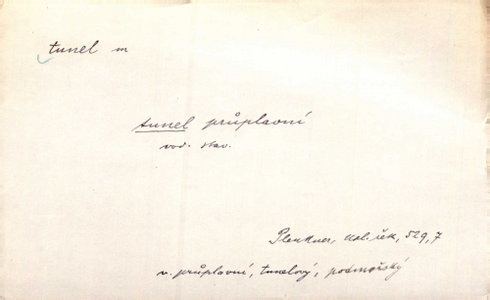 tunel m
tunel průplavní
vod. stav.
Plenkner, spl. řek, 529,7
v. průplavní, tunelový, podmořský